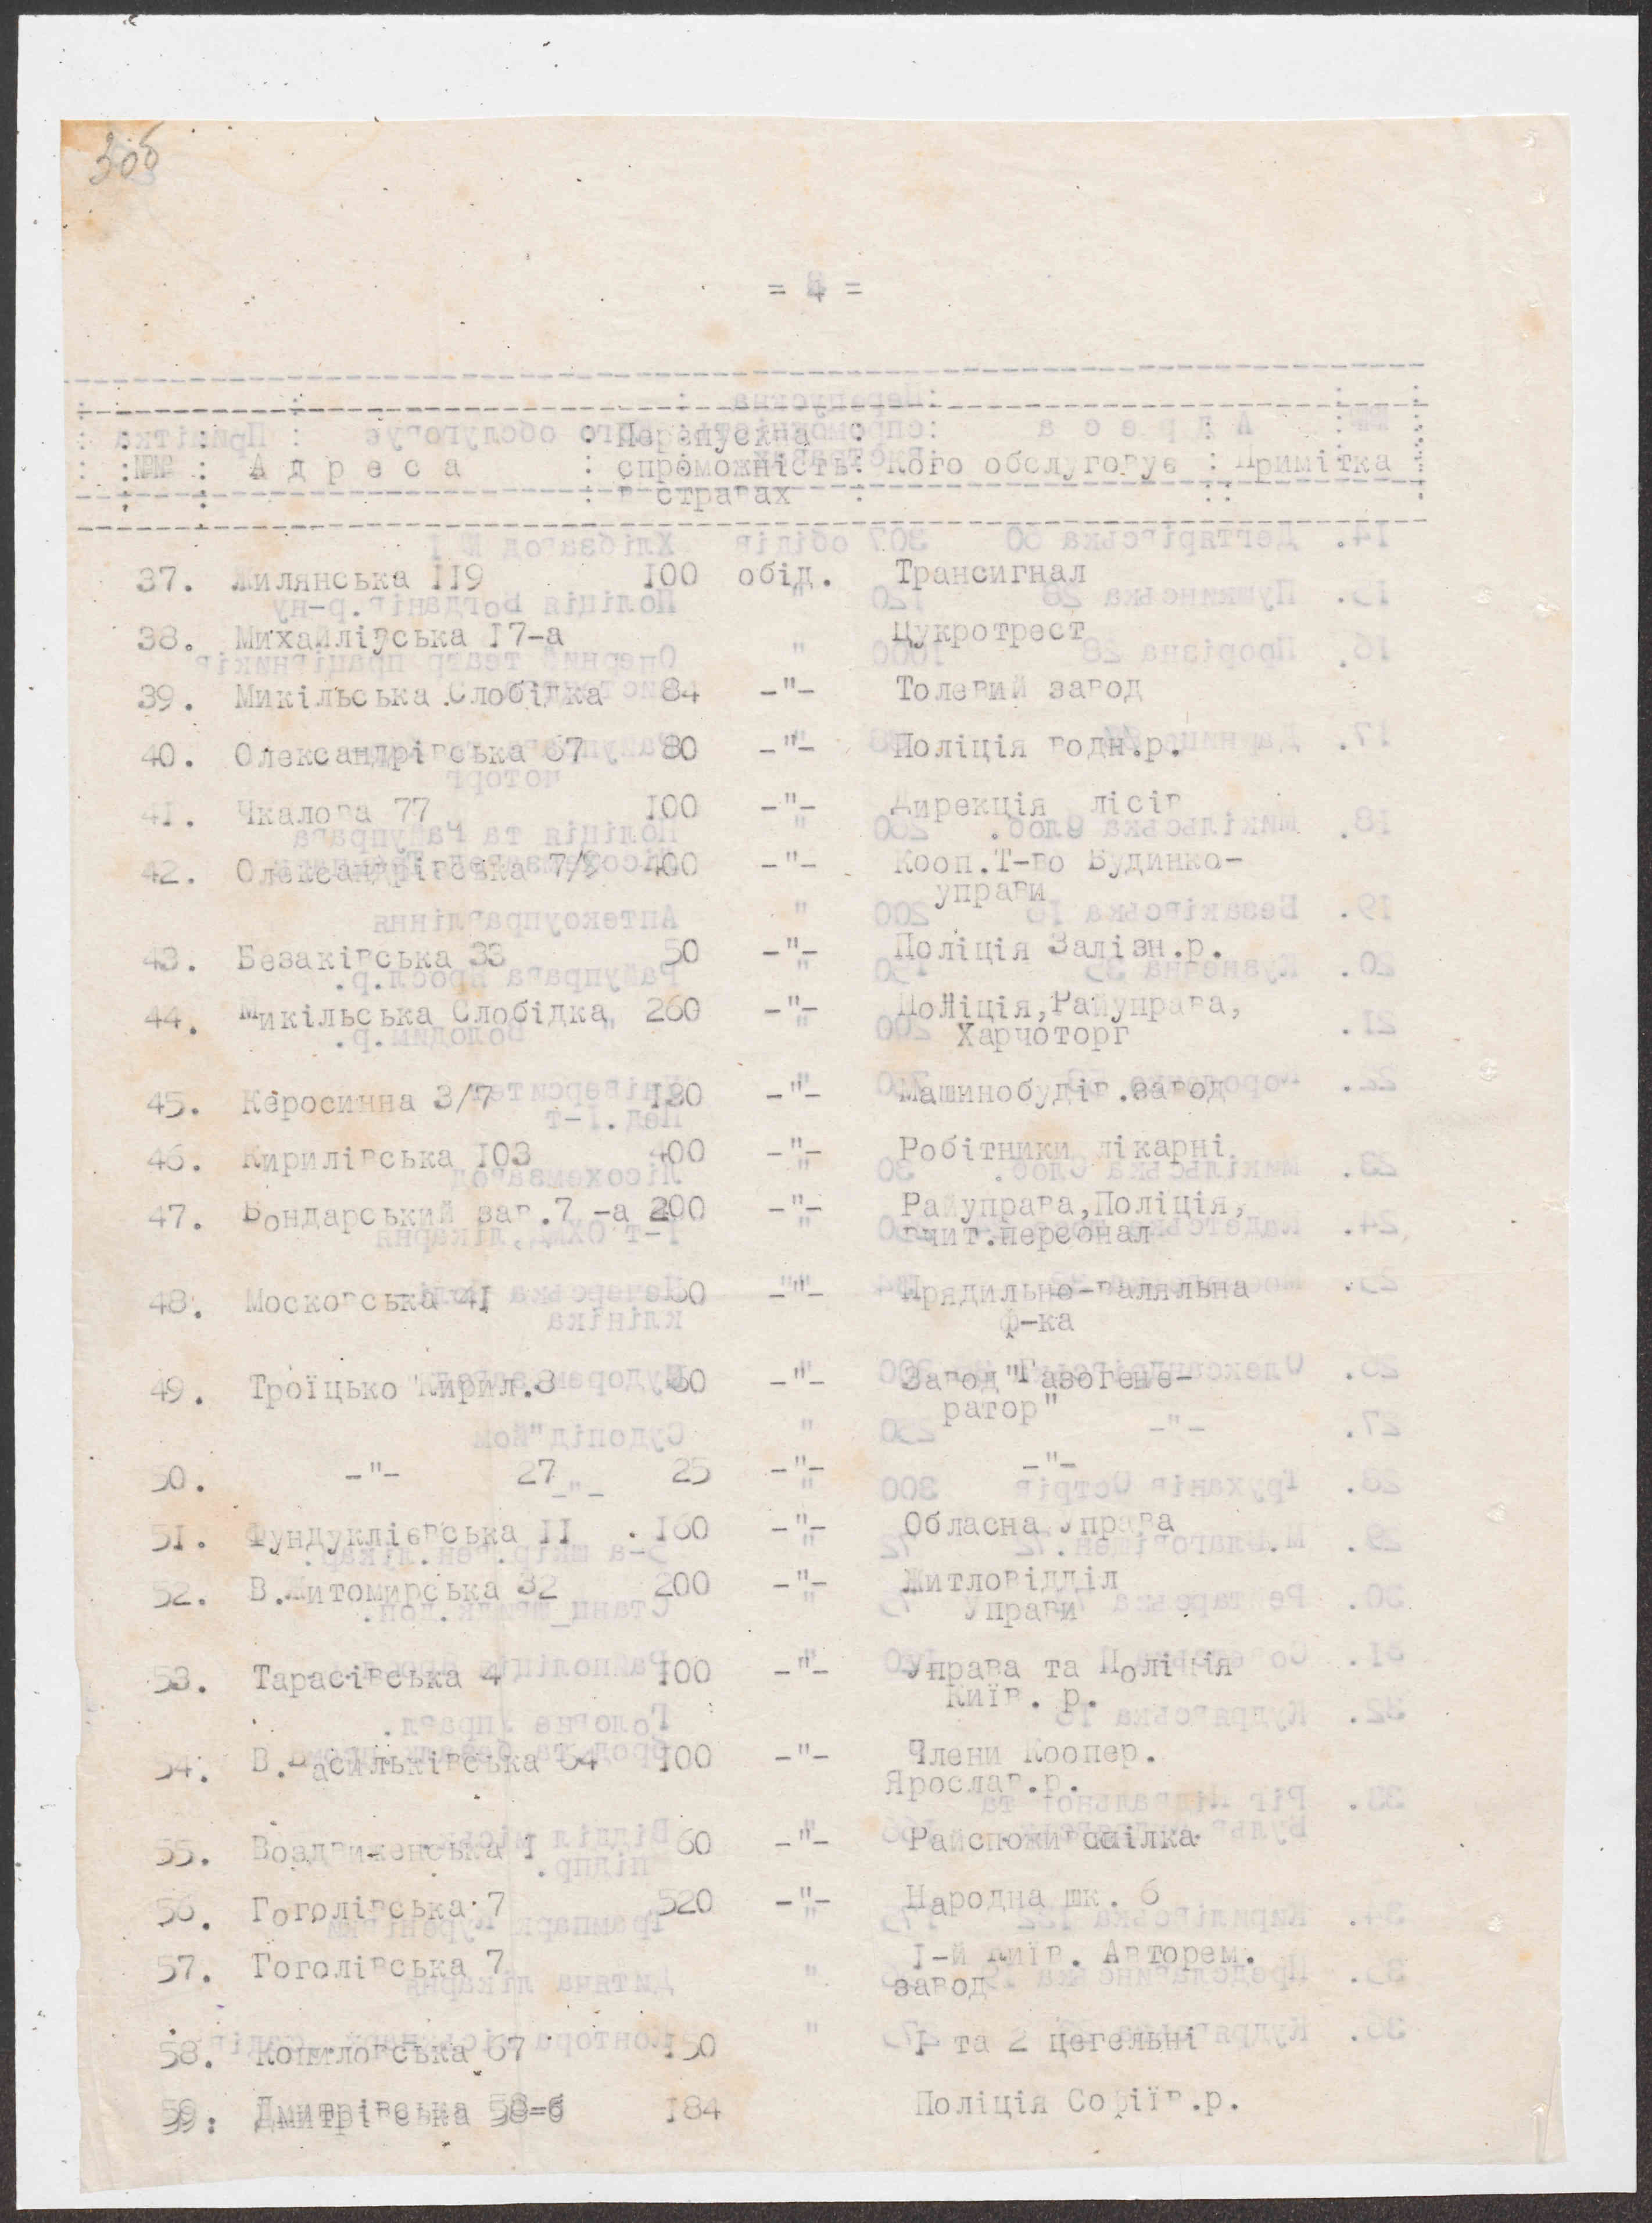 30б
= 4 =
№№ : А д р е с а : Перепускна спроможність в стравах : Кого обслуговує : Примітка
37. Жилянська 119 100 обід. Трансигнал
38. Михайлівська 17-а Цукротрест
39. Микільська Слобідка 84 -"- Толевий завод
40. Олександрівська 67 80 -"- Поліція водн.р.
41. Чкалова 77 100 -"- Дирекція лісів
42. Олександрівська 400 -"- Кооп.Т-во Будинко-
управи
43. Безаківська 33 50 -"- Поліція Залізн.р.
44. Микільська Слобідка 260 -"- Поліція,Райуправа,
Харчоторг
45. Керосинна 3/7 130 -"- Машинобудів.завод
46. Кирилівська 103 400 -"- Робітники лікарні
47. Бондарський зав.7 -а 200 -"- Райуправа,Поліція,
вчит.персонал
48. Московська 41 -"- Прядильно-валяльна
ф-ка
49. Троїцько Кирил.3 -"- Завод"Газогене-
ратор"
50. -"- 27 25 -"- -"-
51. Фундуклієвська 11 160 -"- Обласна Управа
52. В.Житомирська 32 200 -"- Житловідділ
Управи
53. Тарасівська 4 100 -"- Управа та Поліція
Київ. р.
54. В.Васильківська 64 100 -"- Члени Коопер.
Ярослав.р.
55. Воздвиженська 1 60 -"- Райспоживспілка
56. Гоголівська 7 520 -"- Народна шк. 6
57. Гоголівська 7 1-й Київ. Авторем.
завод
58. 67 150 1 та 2 цегельні
59. Дмитрівська 184 Поліція Софіїв.р.